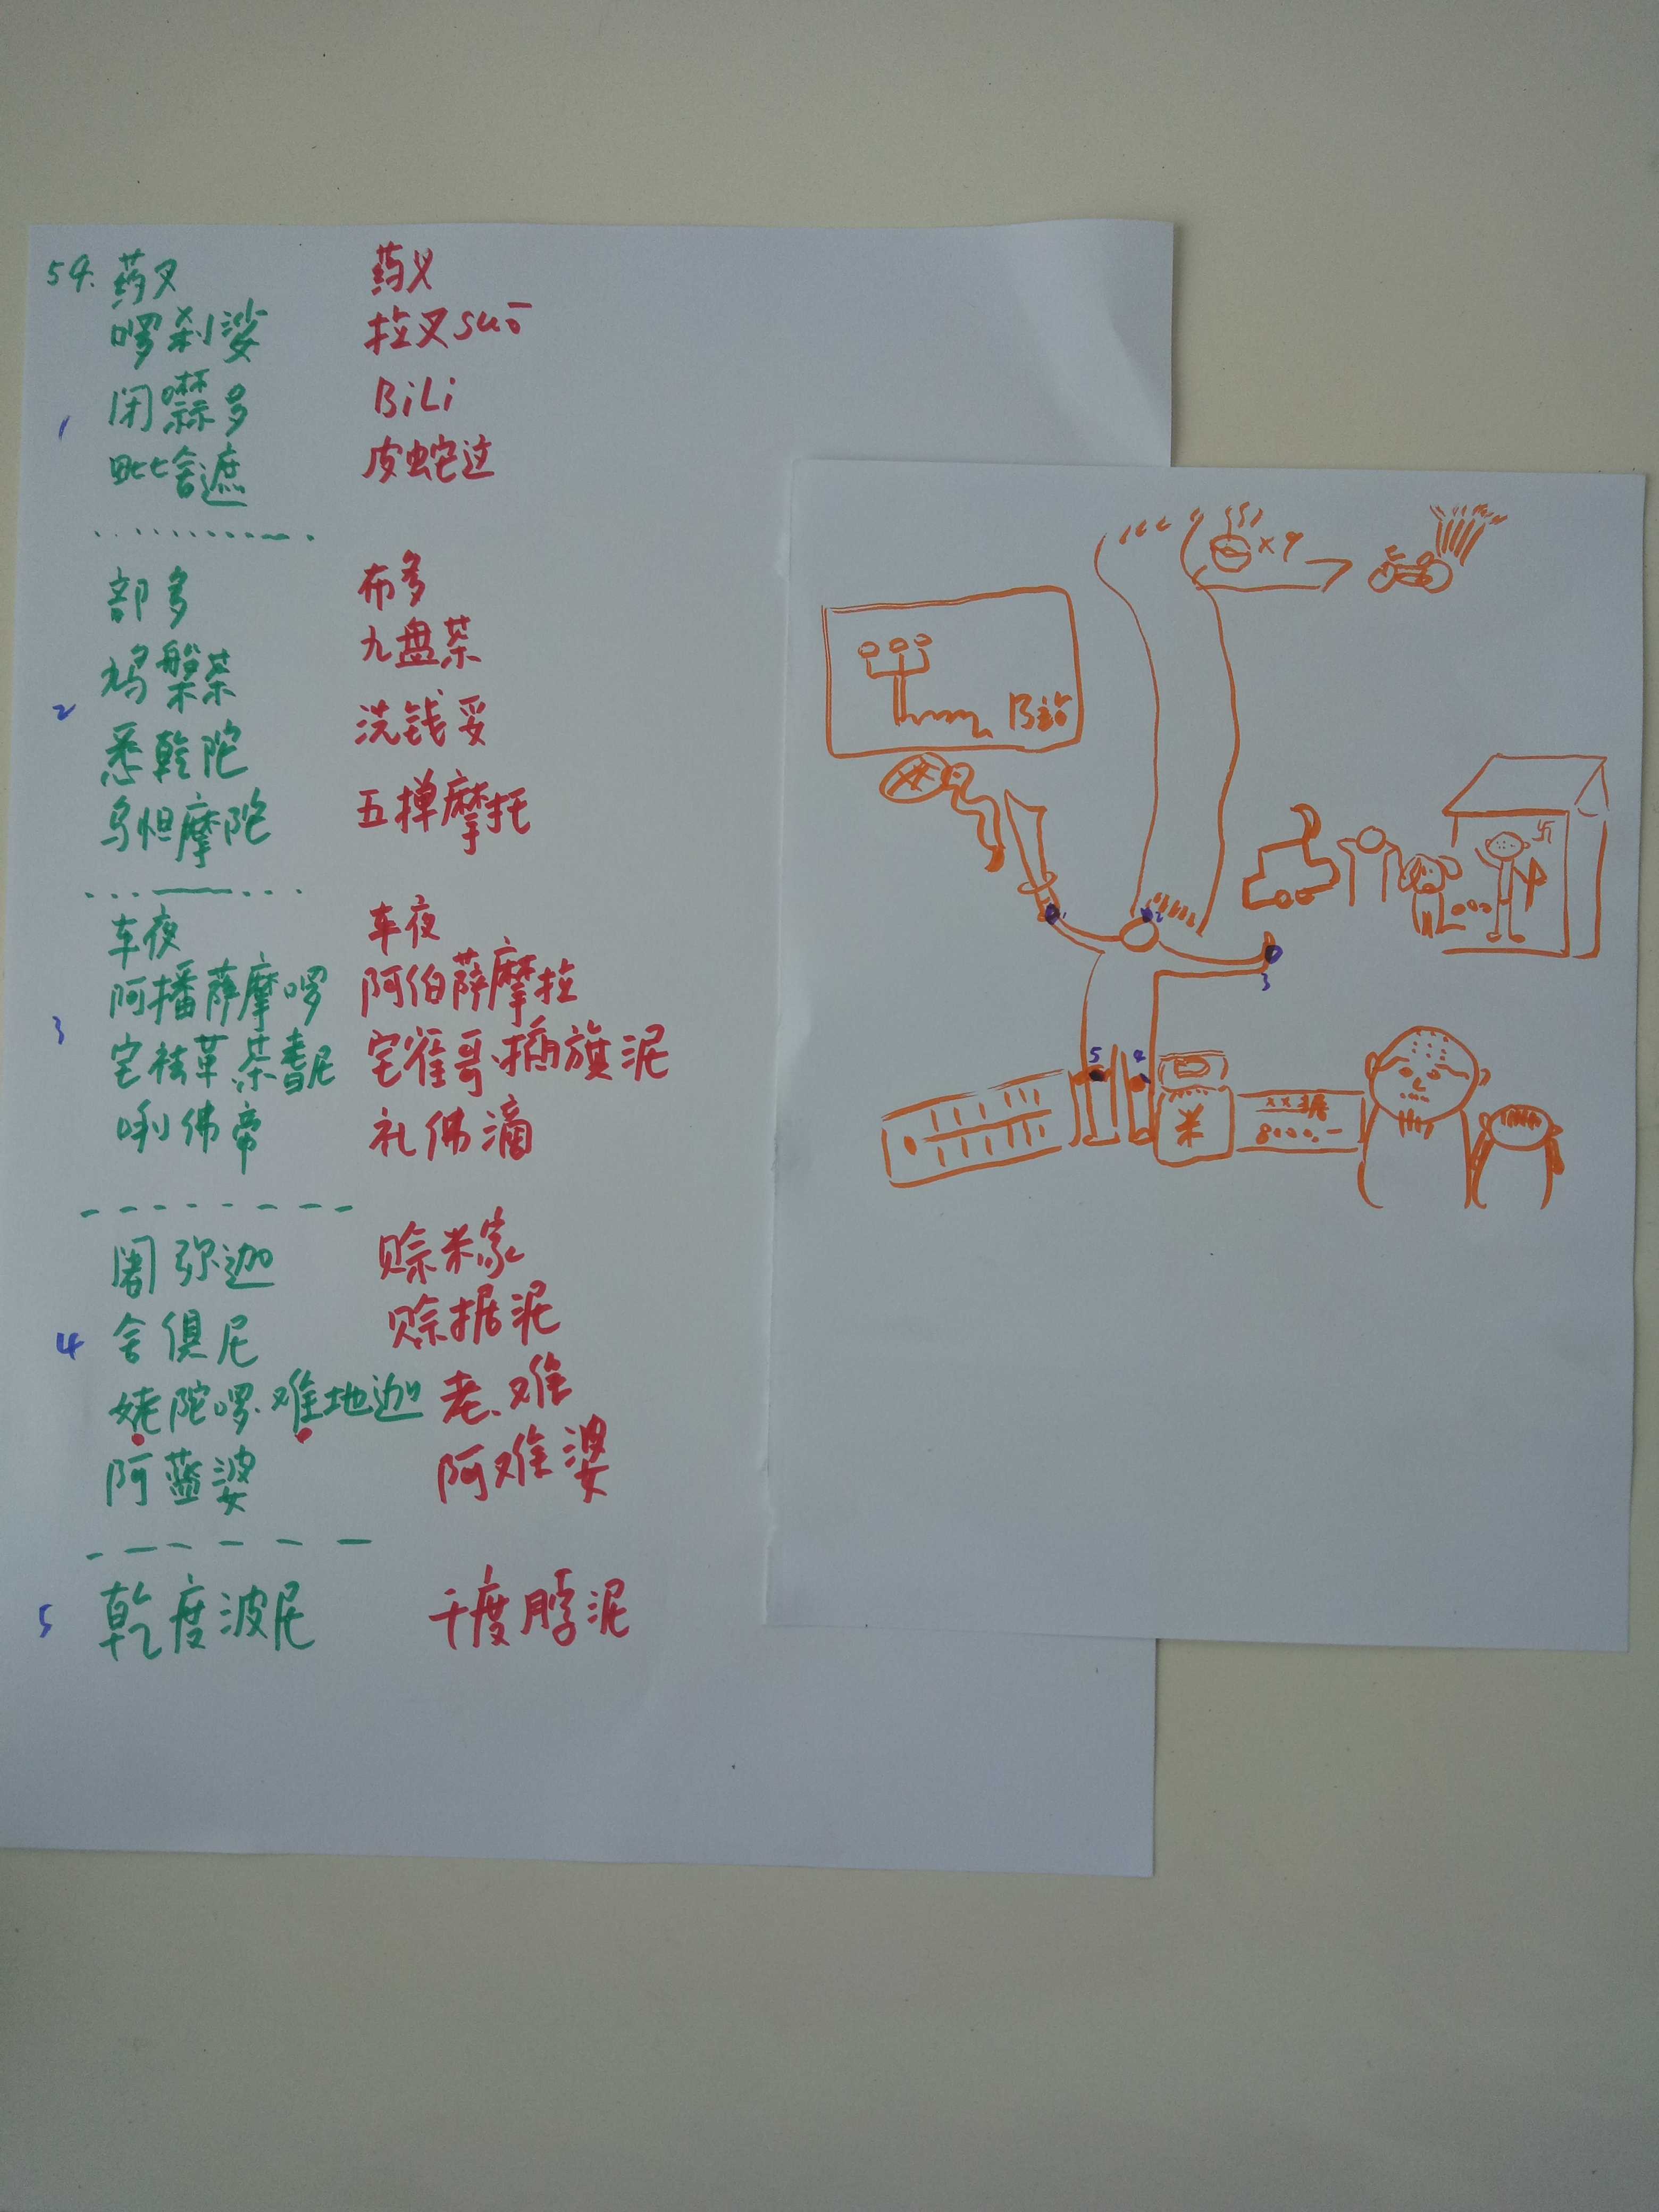 54. 药叉 药义
啰刹娑 拉叉suō
闭㘑多 BiLi
1
毗舍遮 皮蛇这
部多 布多
鸠槃茶 九盘茶
2
悉乾陀 洗钱妥
乌怛摩陀 五掸摩托
车夜 车夜
阿播萨摩啰 阿伯萨摩拉
3
宅袪革 茶耆尼 宅雀哥.插旗泥
唎佛帝 礼佛滴
阇弥迦 赊米家
4 舍俱尼 赊据泥
姥陀啰.难地迦 老.难
阿蓝婆 阿难婆
5 乾度波尼 千度脖泥
×9
Bili
1
2
3
5
4
米
××据
8000.-